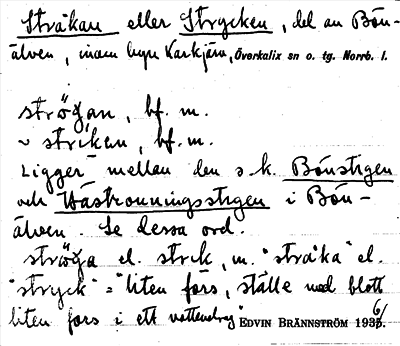 Sträkan eller Strycken, del av Bön-
älven, inom byn Karkjärn, Överkalix sn o. tg. Norrb. l.
strögan, bf. m.
~ striken, bf. m.
Ligger mellan den s.k. Bönstigen
och Hästronningsstigen i Bön-
älven. Se dessa ord.
ströga el. strik, m. "stråka" el.
"stryck" = "liten fors, ställe med blott
liten fors i ett vattendrag" EDVIN BRÄNNSTRÖM 1936.